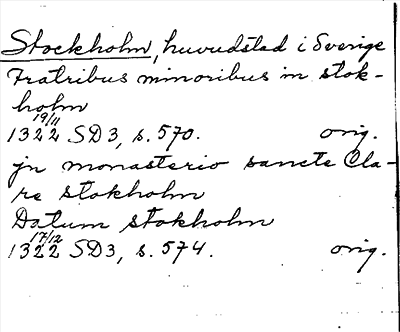 Stockholm, huvudstad i Sverige
Fratribus minoribus in stok-
holm
19/11
1322 SD3, s. 570. orig.
jn monasterio sancte Cla-
re stokholm
Datum stokholm
17/12
1322 SD3, s. 574. orig.